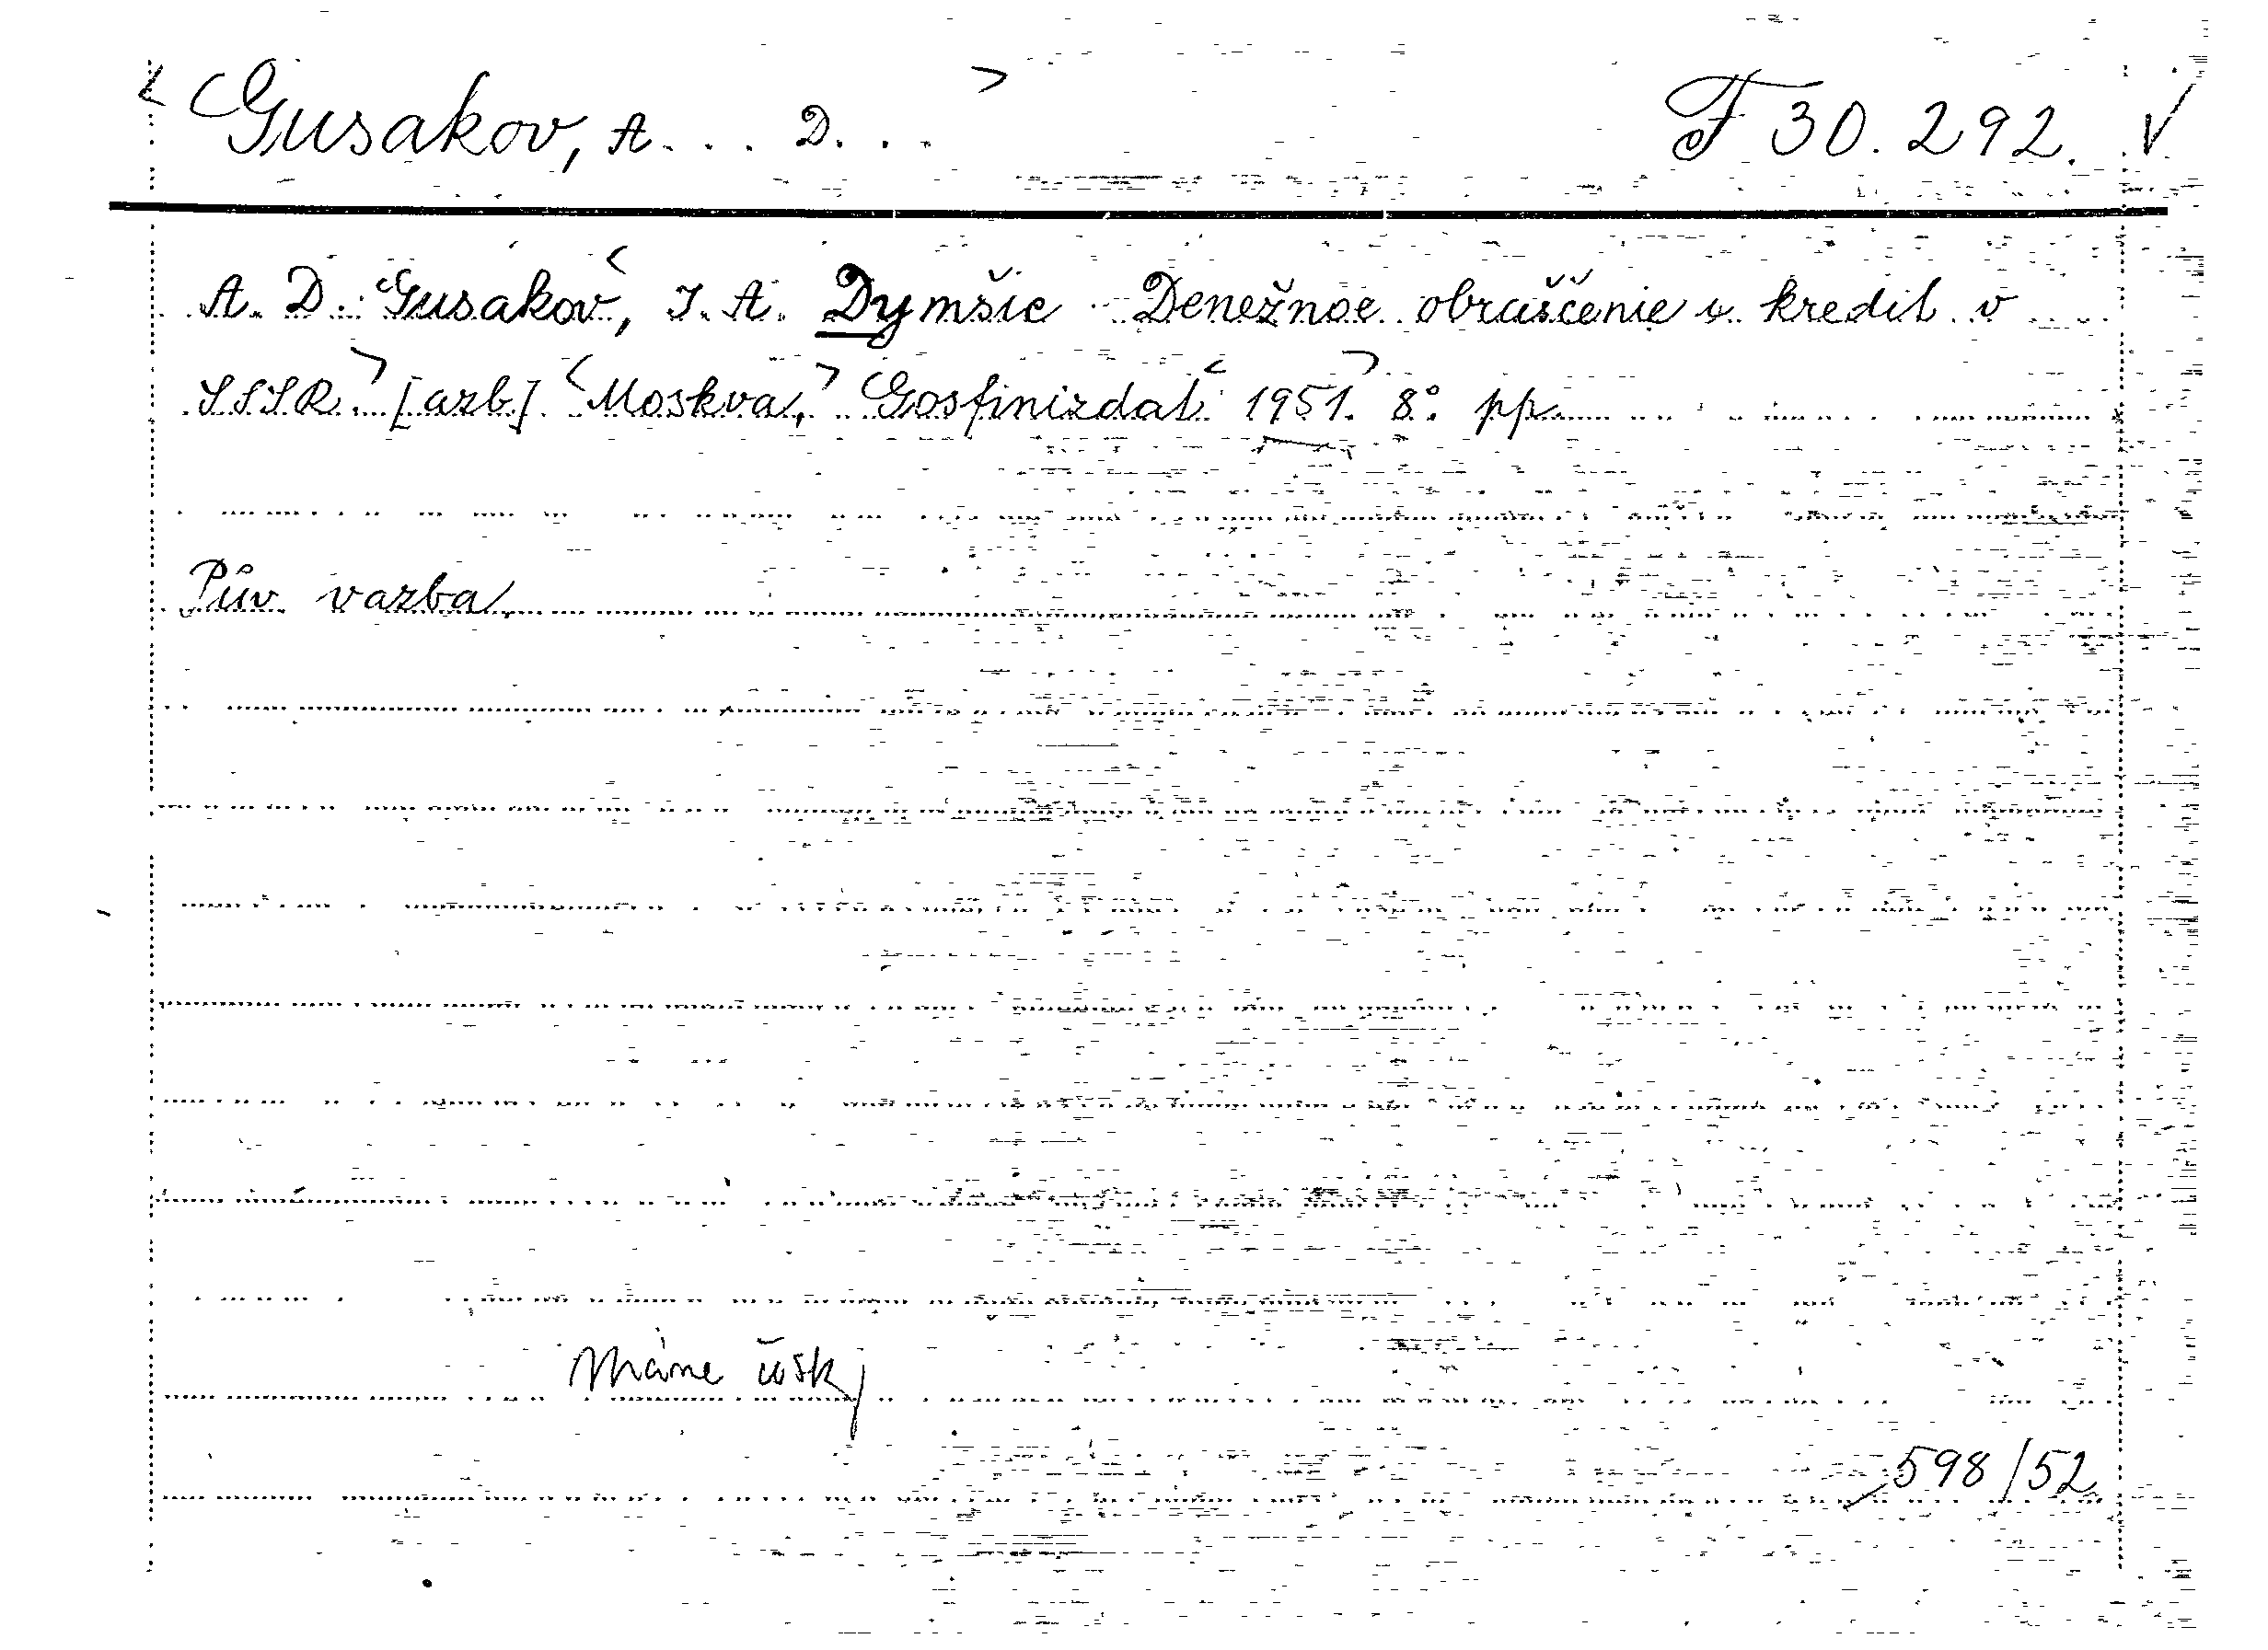 <Gusakov, A... D...> F 30.292. √
A. D. Gusakov<, I. A. Dymšic Denežnoe obraščenie i kredit v
SSSR.> [azb] <Moskva,> Gosfinizdat <1951.> 8° pp.
Pův. vazba
Máme česk
598/52